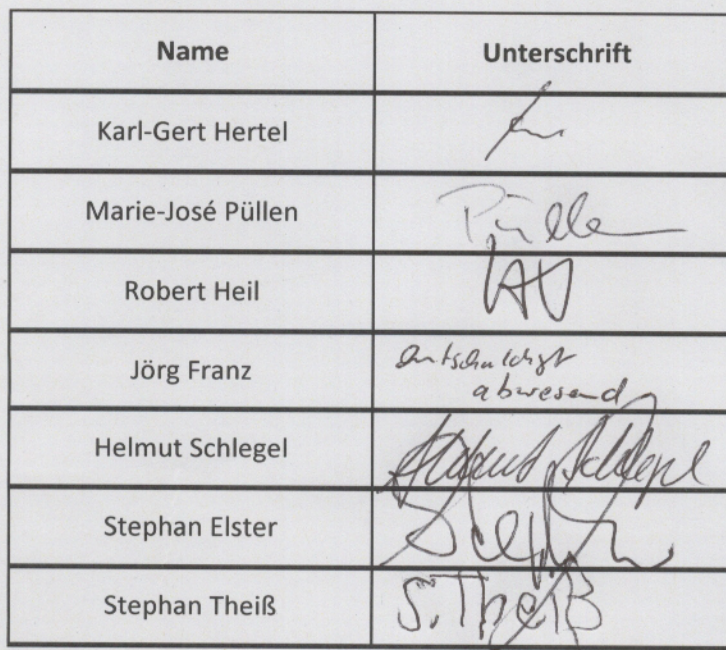 Name Unterschrift
Karl-Gert Hertel
Marie-José Püllen Püllen
Robert Heil
Jörg Franz entschuldigt
abwesend
Helmut Schlegel Helmut Schlegel
Stephan Elster Stephan
Stephan Theiß S. Theiß